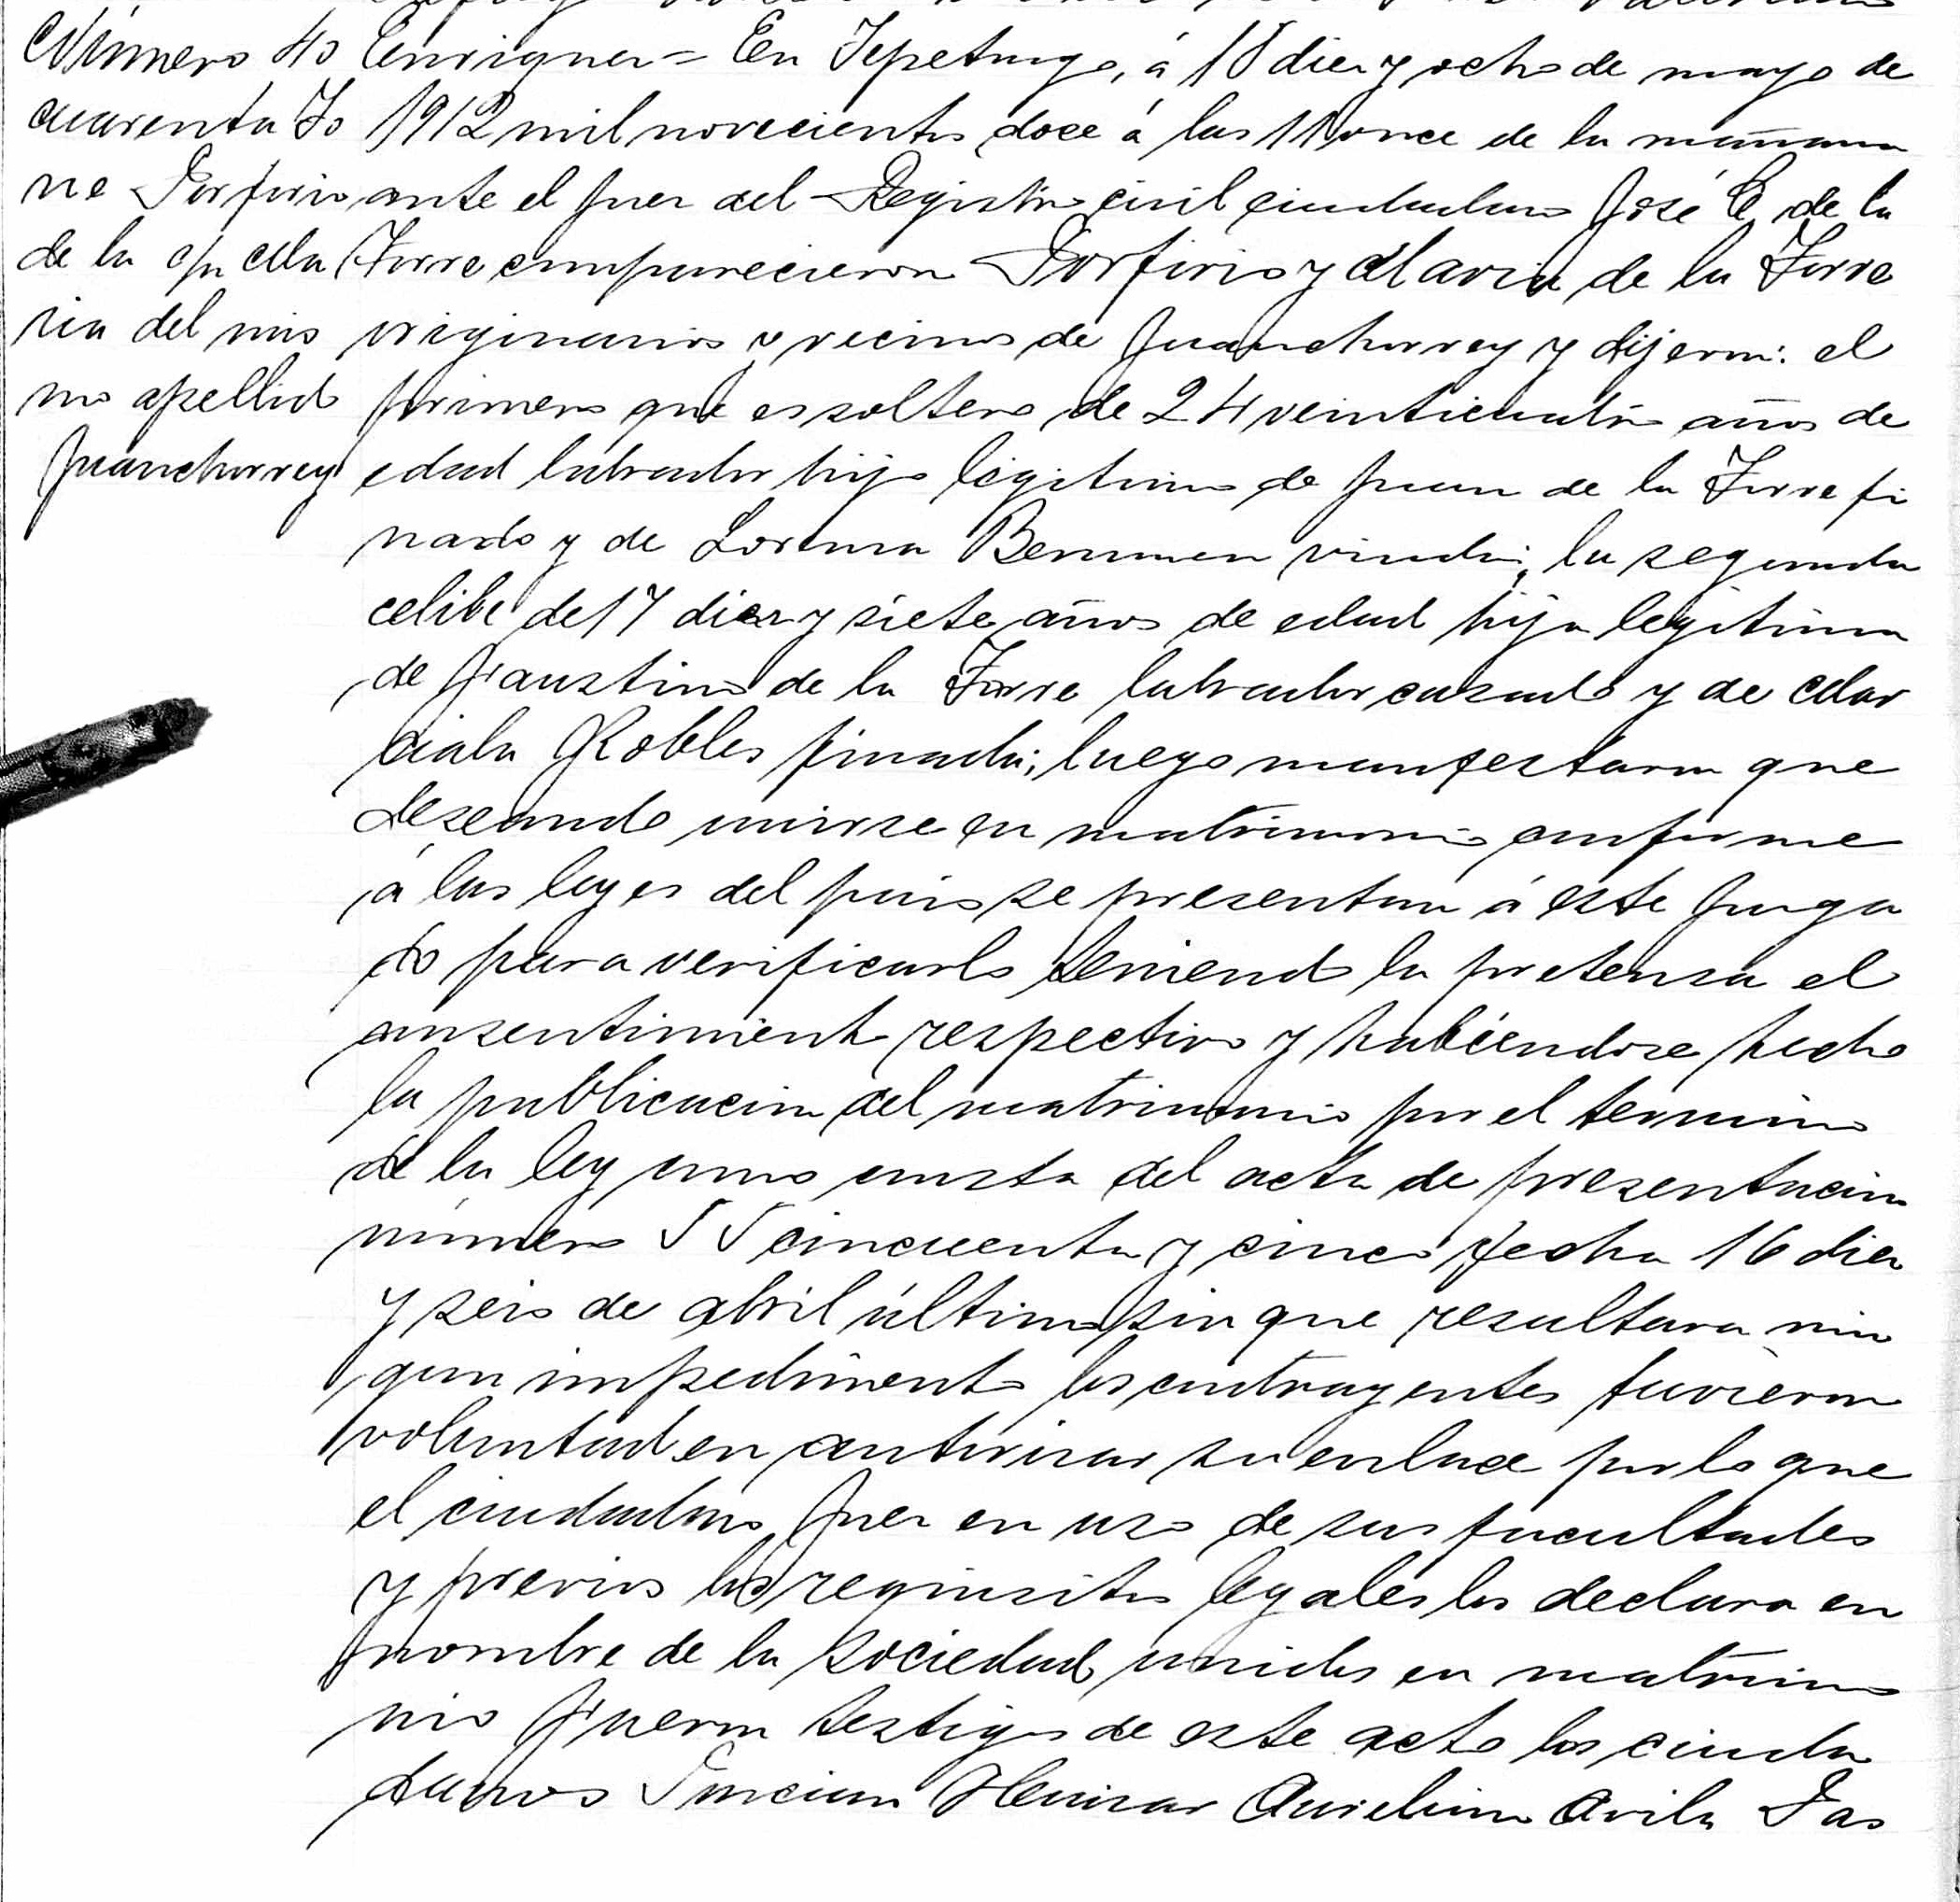 Número 40
cuarenta To
rre Porfirio
de la y Ma
ria del mis
mo apellido
Juanchorrey
Enriquez = En Tepetongo, á 18 diez y ocho de mayo de
1912 mil novecientos doce á las 11 once de la mañana
ante el Juez del Registro civil ciudadano José E. de la
Torre comparecieron Porfirio y Maria de la Torre
originarios y vecinos de Juanchorrey y dijeron: el
primero que es soltero de 24 veinticuatro años de
edad labrador hijo legitimo de Juan de la Torre fi
nado y de Lorensa Bermen viuda; la segunda
celibe de 17 diez y siete años de edad hija legitima
de Faustino de la Torre labrador casado y de Mar
ciala Robles finada; luego manifestaron que
deseando unirse en matrimonio conforme
á las leyes del pais se presentan á este Juzga
do para verificarlo teniendo la pretensa el
consentimiento respectivo y habiendose hecho
la publicacion del matrimonio por el termino
de la ley como consta del acta de presentacion
número 55 cincuenta y cinco fecha 16 diez
y seis de abril último sin que resultara nin
gun impedimento los contrayentes tuvieron
voluntad en autorizar su enlace por lo que
el ciudadano Juez en uso de sus facultades
y previos los requisitos legales los declara en
nombre de la sociedad unidos en matrimo
nio Fueron testigos de este acto los ciuda
danos Ponciano Aurelino Avila Pas